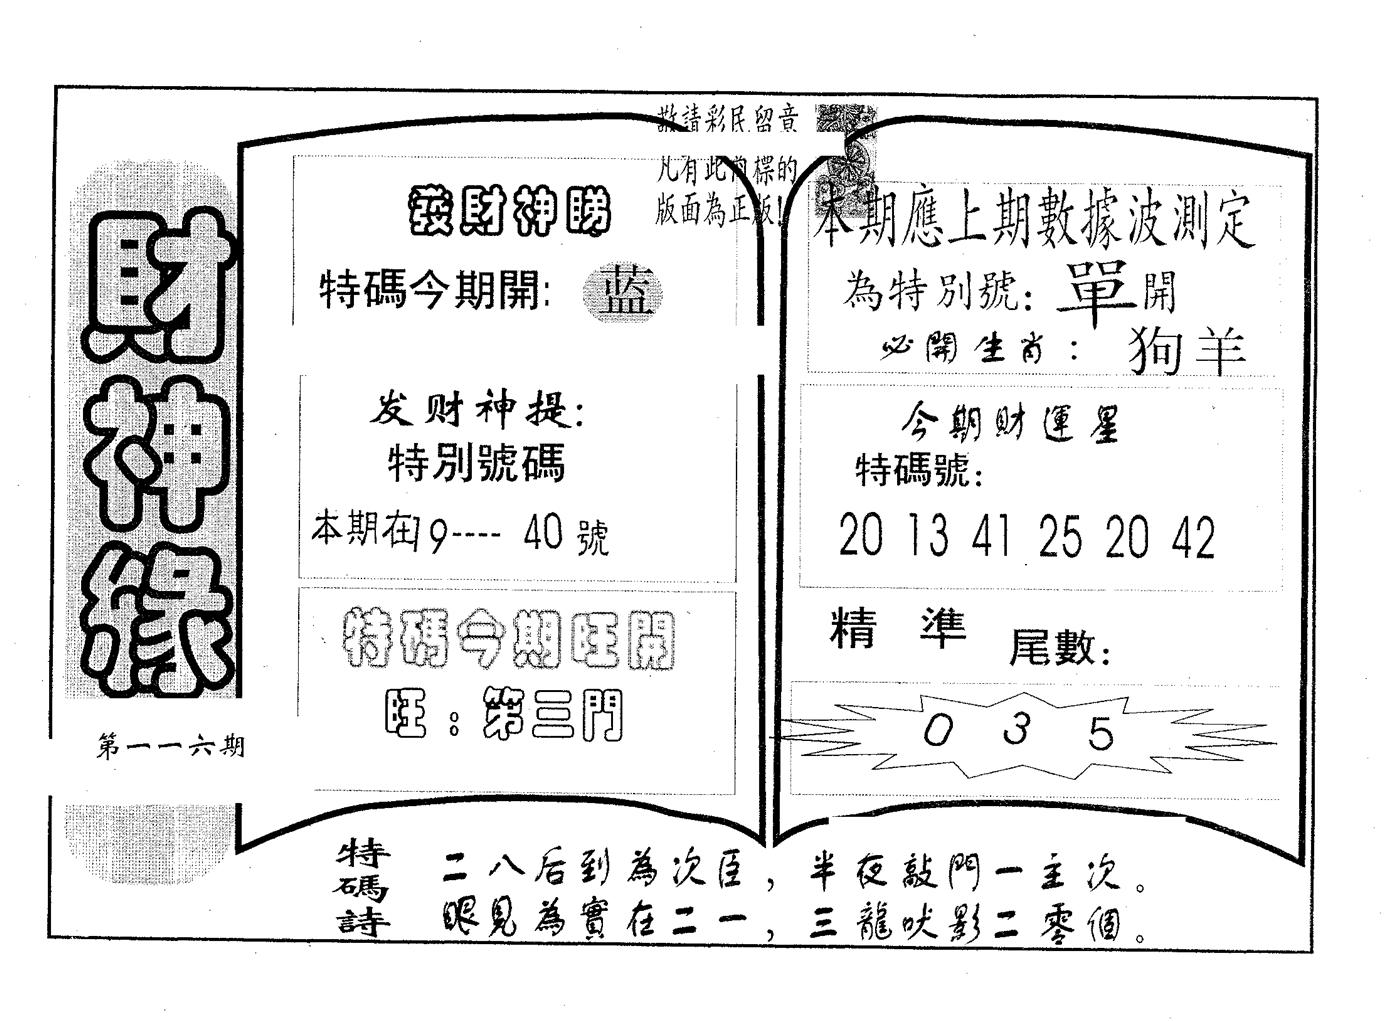 財神緣
第一一六期
敬請彩民留意
凡有此商標的
版面為正版!
發財神睇
特碼今期開: 蓝
发财神提:
特別號碼
本期在19---- 40號
特碼今期旺開
旺:第三門
本期應上期數據波測定
為特別號: 單開
必開生肖: 狗羊
今期財運星
特碼號:
20 13 41 25 20 42
精 準 尾數:
0 3 5
特碼詩
二八后到為次臣,半夜敲門一主次。
眼見為實在二一,三龍吠影二零個。